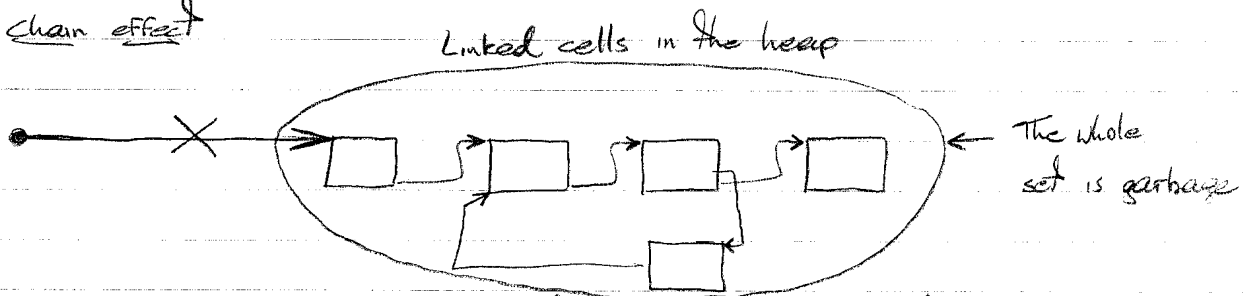 Chain effect
Linked cells in the heap
The whole
set is garbage